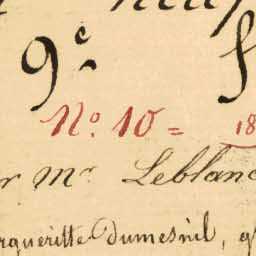 9e
No. 10 = 18
r mr Leblanc
rgueritte Dumesnil, g